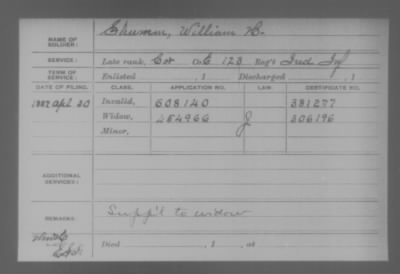 NAME OF SOLDIER: Shuman, William H.
SERVICE: Late rank, Cor Co. E 123 Reg't Ind Inf
TERM OF SERVICE: Enlisted , 1 Discharged , 1
DATE OF FILING. CLASS. APPLICATION NO. LAW. CERTIFICATE NO.
1887 Apl 20 Invalid, 608140 381277
Widow, 454966 J 306196
Minor,
ADDITIONAL SERVICES:
REMARKS: Suppl to widow
Died , 1 , at